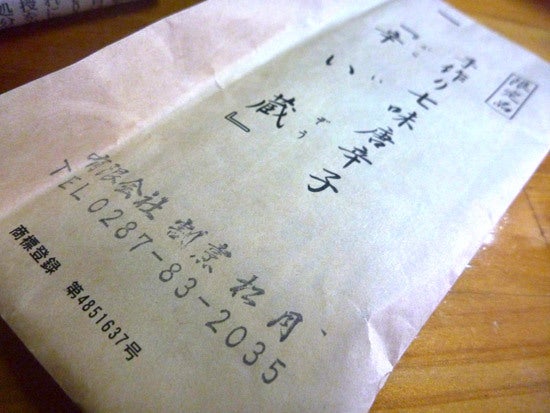 限定品
手作り七味唐辛子
『辛い蔵』
ぞう
有限会社 割烹 松月
TEL0287-83-2035
商標登録 第4851637号